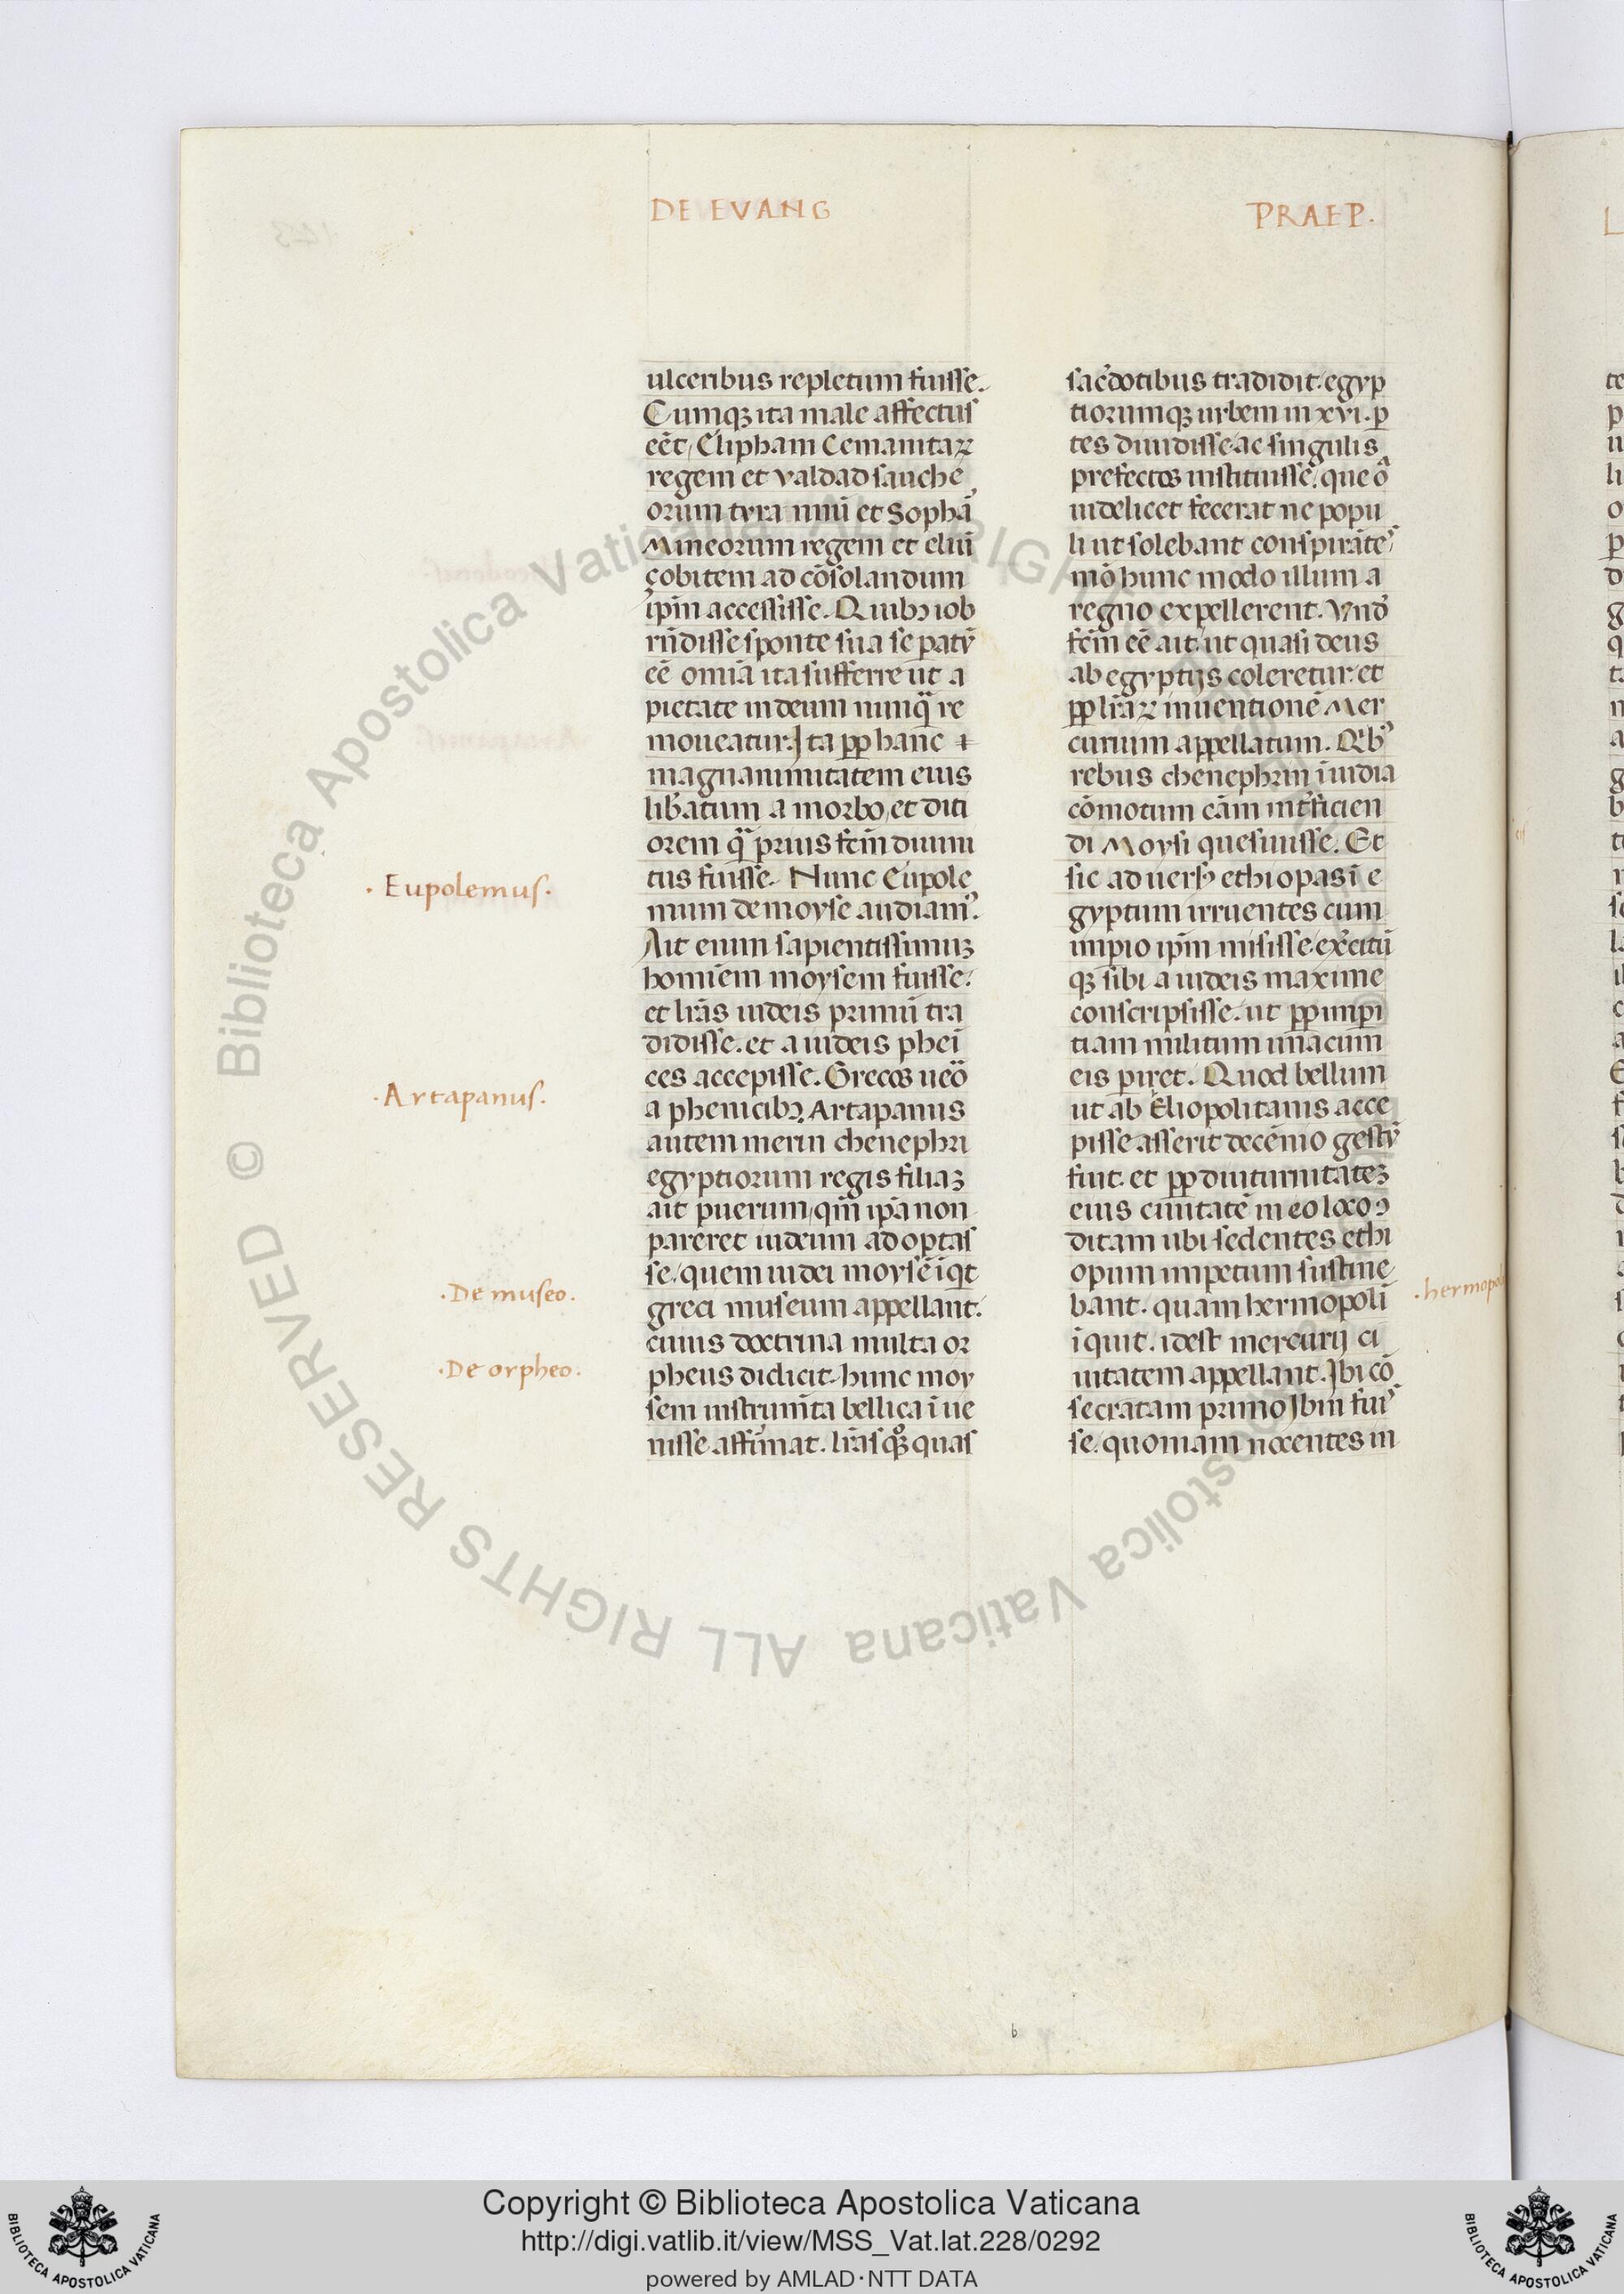 DE EVANG
PRAEP.
ulceribus repletum fuisse.
Cumqꝫ ita male affectus
eēt, Elipham Cemanitaꝝ
regem et valdad sauche
orum tyrannū et Sophā
Mineorum regem et eliū
çobitem ad cōsolandum
ip̄m accessisse. Quibꝫ iob
rn̄disse sponte sua se patꝰ
eē omīa ita sufferre ut a
pietate in deum nunqᷓ re
moueatur. Ita ꝓp hanc
magnanimitatem eius
libꝰatum a morbo, et diti
orem qᷓ prius fem̄ diuini
tus fuisse. Nunc Eupole
mum de moyse audiamꝰ.
Ait enim sapientissimuꝫ
homīem moysem fuisse.
et lr̄as iudeis primū tra
didisse. et a iudeis phei
ces accepisse. Grecos ūeo
a phenicibꝫ Artapanus
autem merin chenephri
egyptiorum regis filiaꝫ
ait puerum, qm̄ ip̄a non
pareret iudeum adoptas
se. quem iudei moysē īqt
greci museum appellant.
cuius doctrina multa or
pheus didicit. hunc moy
sem instrum̄ta bellica īue
nisse affirmat. lr̄as qꝫ quas
sacꝰdotibus tradidit. egyp
tiorumqꝫ urbem in xvi. ꝑ
tes diuidisse ac singulis
prefectos instituisse. que oīa
uidelicet fecerat ne popu
li ut solebant conspirātes
mō hunc modo illum a
regno expellerent. Vnde
fem̄ eē ait. ut quasi deus
ab egyptijs coleretur. et
ꝓp lr̄aꝝ inuentionē Mer
curium appellatum. Qibꝰ
rebus chenephrin īuidia
cōmotum cām intꝰficien
di Moysi quesiuisse. Et
sic aduersꝰ ethiopas ī e
gyptum irruentes cum
impio ip̄m misisse. exꝰcitū
qꝫ sibi a iudeis maxime
conscripsisse. ut ꝓp impi
tiam militum una cum
eis piret. Quod bellum
ut ab Eliopolitanis acce
pisse asserit decēnio gestꝰ
fuit. et ꝓp diuturnitateꝫ
eius ciuitatē in eo loco ꝯ
ditam ubi sedentes ethi
opum impetum sustine
bant. quam hermopolī
īquit. idest mercurij ci
uitatem appellant. Ibi cō
secratam primo Ibin fuis
se. quoniam nocentes in
. Eupolemus.
.Artapanus.
.De museo.
.De orpheo.
.hermopoli
b
© Biblioteca Apostolica Vaticana ALL RIGHTS RESERVED
© Biblioteca Apostolica Vaticana ALL RIGHTS RESERVED
Copyright © Biblioteca Apostolica Vaticana
http://digi.vatlib.it/view/MSS_Vat.lat.228/0292
powered by AMLAD·NTT DATA
BIBLIOTECA APOSTOLICA VATICANA
BIBLIOTECA APOSTOLICA VATICANA